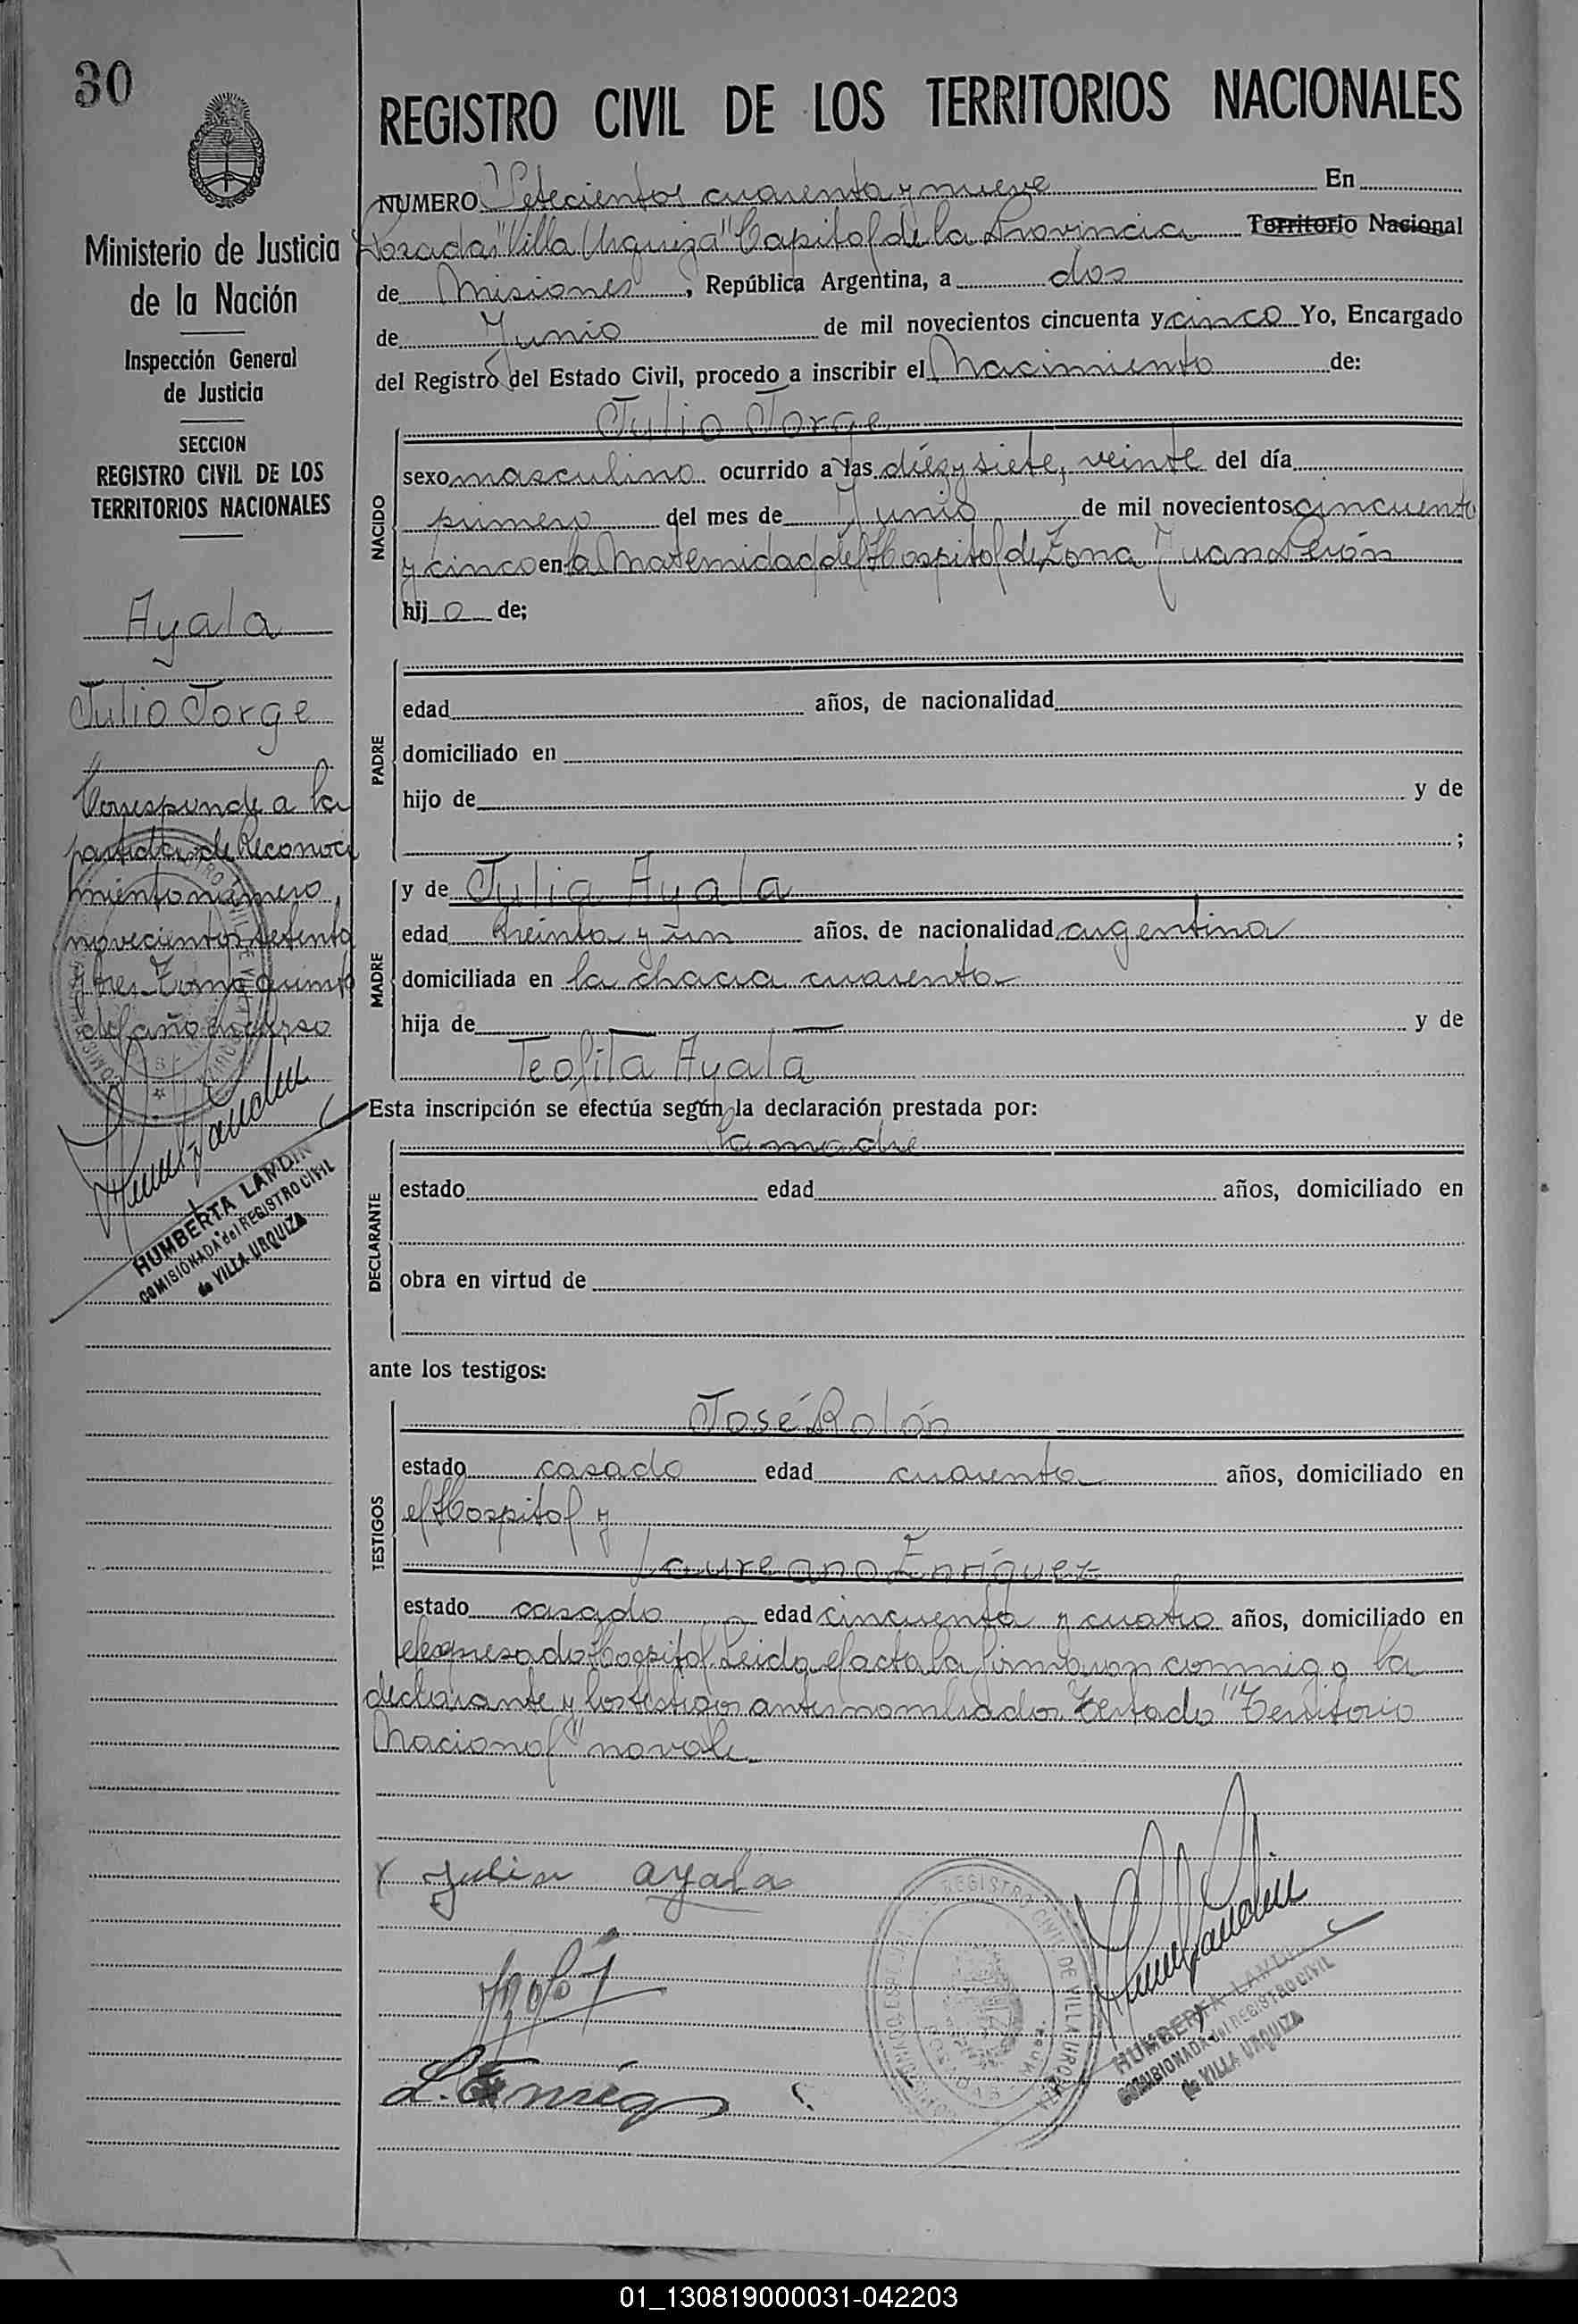 30
REGISTRO CIVIL DE LOS TERRITORIOS NACIONALES
NUMERO Setecientos cuarenta y nueve En
Posadas "Villa Urquiza" Capital de la Provincia Territorio Nacional
de Misiones, República Argentina, a dos
de Junio de mil novecientos cincuenta y cinco Yo, Encargado
del Registro del Estado Civil, procedo a inscribir el Nacimiento de:
Ministerio de Justicia
de la Nación
Inspección General
de Justicia
SECCION
REGISTRO CIVIL DE LOS
TERRITORIOS NACIONALES
Ayala
Julio Jorge
Corresponde a la
partida de Reconoci
miento número
novecientos setenta
y tres Tomo quinto
del año en curso
HUMBERTA LANDIN
COMISIONADA del REGISTRO CIVIL
de VILLA URQUIZA
NACIDO
Julio Jorge
sexo masculino ocurrido a las diez y siete, veinte del día
primero del mes de Junio de mil novecientos cincuenta
y cinco en la Maternidad del Hospital de Zona Juan Perón
hijo de;
PADRE
edad años, de nacionalidad
domiciliado en
hijo de y de
;
MADRE
y de Julia Ayala
edad treinta y un años. de nacionalidad argentina
domiciliada en la chacra cuarenta
hija de — — y de
Teofila Ayala
Esta inscripción se efectúa según la declaración prestada por:
DECLARANTE
la madre
estado edad años, domiciliado en
obra en virtud de
ante los testigos:
TESTIGOS
José Rolón
estado casado edad cuarenta años, domiciliado en
el Hospital y
Laureano Enríquez
estado casado edad cincuenta y cuatro años, domiciliado en
el expresado Hospital. Leida el acta la firmaron conmigo la
declarante y los testigos antes nombrados. Testado "Territorio
Nacional" no vale.
x Julia ayala
L. Enriq
REGISTRO CIVIL DE VILLA URQUIZA
HUMBERTA LANDIN
COMISIONADA del REGISTRO CIVIL
de VILLA URQUIZA
01_130819000031-042203